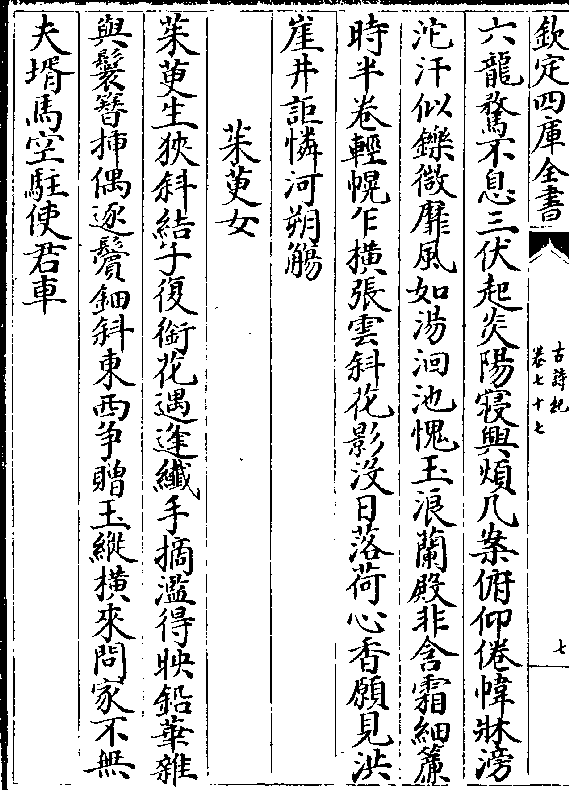 欽定四庫全書
古詩紀
卷七十七
七
六龍騖不息三伏起炎陽寢興煩几案俯仰倦幃牀滂
沱汗似鑠微靡風如湯洄池愧玉浪蘭殿非含霜細簾
時半卷輕幌乍橫張雲斜花影沒日落荷心香願見洪
崖井詎憐河朔觴
茱萸女
茱萸生狹斜結子復銜花遇逢纖手摘濫得映鉛華雜
與鬟簪揷偶逐鬢鈿斜東西争贈玉縱橫來問家不無
夫壻馬空駐使君車